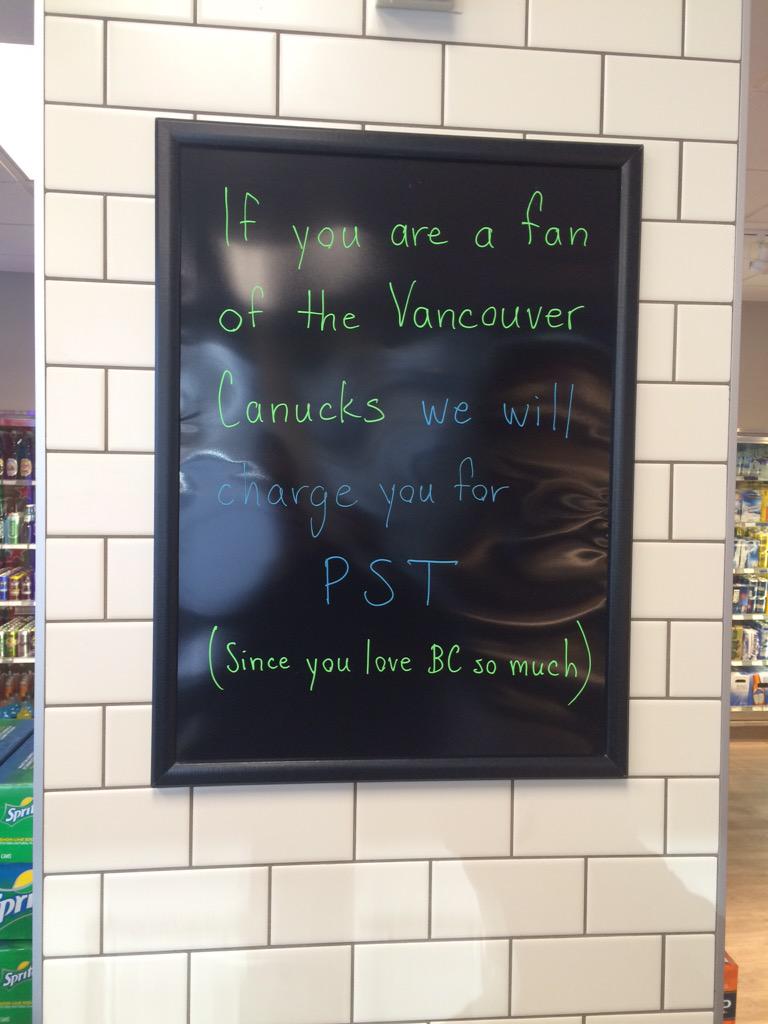 If you are a fan
of the Vancouver
Canucks we will
charge you for
PST
(Since you love BC so much)
Sprit
Spri
Sprit